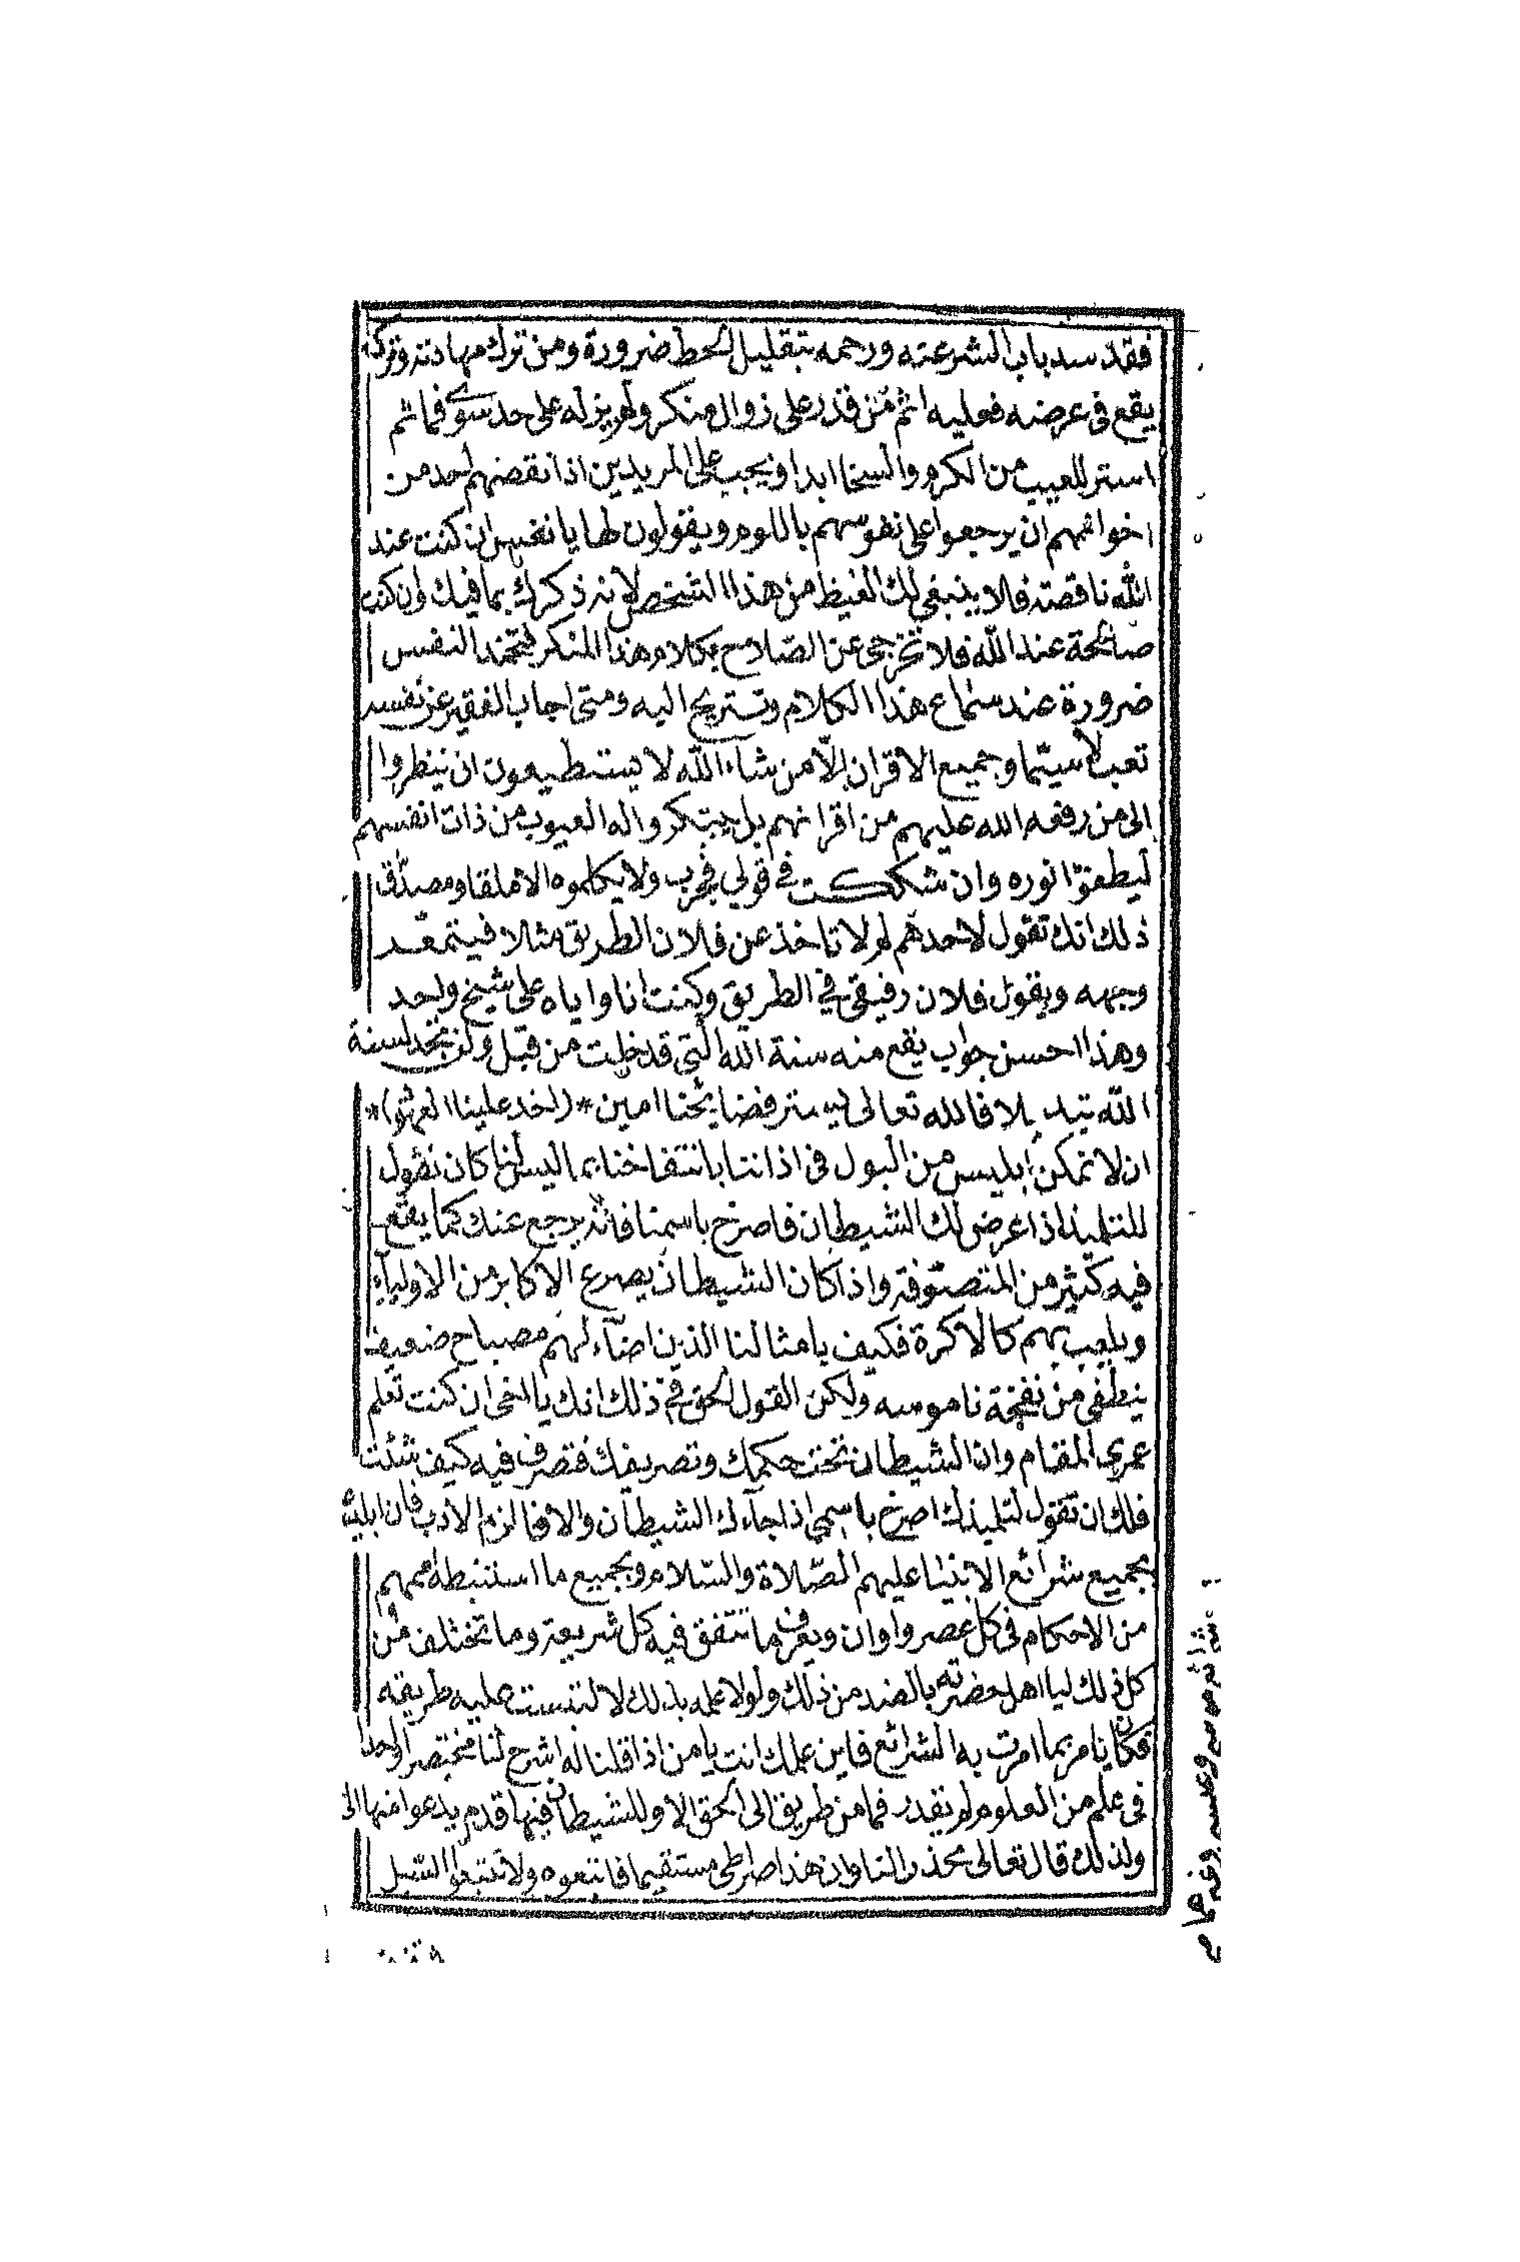 فقد سد باب الشر عنه ورحمه بتقليل الحط ضرورة ومن ترك مهاداته وتركه
يقع في عرضه فعليه اثم من قدر على زوال منكر ولم يزله على حد سوى فما ثم
استر للعيب من الكرم والسخا ابدا ويجب على المريدين اذا نقصهم احد من
اخوانهم ان يرجعوا على نفوسهم باللوم ويقولون لها يا نفس ان كنت عند
الله ناقصة فلا ينبغي لك الغيظ من هذا الشخص لانه ذكرك بما فيك وان كنت
صالحة عند الله فلا تخرجي عن الصلاح بكلام هذا المنكر فتخمد النفس
ضرورة عند سماع هذا الكلام وتستريح اليه ومتى اجاب الفقير عن نفسه
تعب لا سيما وجميع الاقران الا من شاء الله لا يستطيعون ان ينظروا
الى من رفعه الله عليهم من اقرانهم بل يبتكروا له العيوب من ذات انفسهم
ليطفؤا نوره وان شككت في قولي فجرب ولا يكلموه الا ملقا ومصداق
ذلك انك تقول لاحدهم لولا تاخذ عن فلان الطريق مثلا فيتمعد
وجهه ويقول فلان رفيقي في الطريق وكنت انا واياه على شيخ واحد
وهذا احسن جواب يقع منه سنة الله التي قد خلت من قبل ولن تجد لسنة
الله تبديلا فالله تعالى يستر فضايحنا امين * (اخذ علينا العهود) *
ان لا نمكن ابليس من البول في اذاننا بانتفاخنا بما ليس لنا كان نقول
للتلميذ اذا عرض لك الشيطان فاصرخ باسمنا فانه يرجع عنك كما يقع
فيه كثير من المتصوفة واذا كان الشيطان يصرع الاكابر من الاولياء
ويلعب بهم كالاكرة فكيف بامثالنا الذين اضاء لهم مصباح ضعيف
ينطفي من نفخة ناموسه ولكن القول الحق في ذلك انك يا اخي ان كنت تعلم
عمري المقام وان الشيطان تحت حكمك وتصريفك فتصرف فيه كيف شئت
فلك ان تقول لتلميذك اصرخ باسمي اذا جاءك الشيطان والا فالزم الادب فان ابليس
بجميع شرائع الانبيا عليهم الصلاة والسلام وبجميع ما استنبطه اممهم
من الاحكام في كل عصر واوان ويعرف ما تتفق فيه كل شريعة وما تختلف من
كل ذلك ليا اهل حضرته بالضد من ذلك ولولا علمه بذلك لالتبست عليه طريقه
فكان يامر بما امرت به الشرائع فاين علمك انت يا من اذا قلنا له اشرح لنا مختصرا واحدا
في علم من العلوم لم يقدر فما من طريق الى الحق الا وللشيطان فيها قدم يدعوا منها الى
ولذلك قال تعالى محذرا لنا وان هذا صراطي مستقيما فاتبعوه ولا تتبعوا السبل